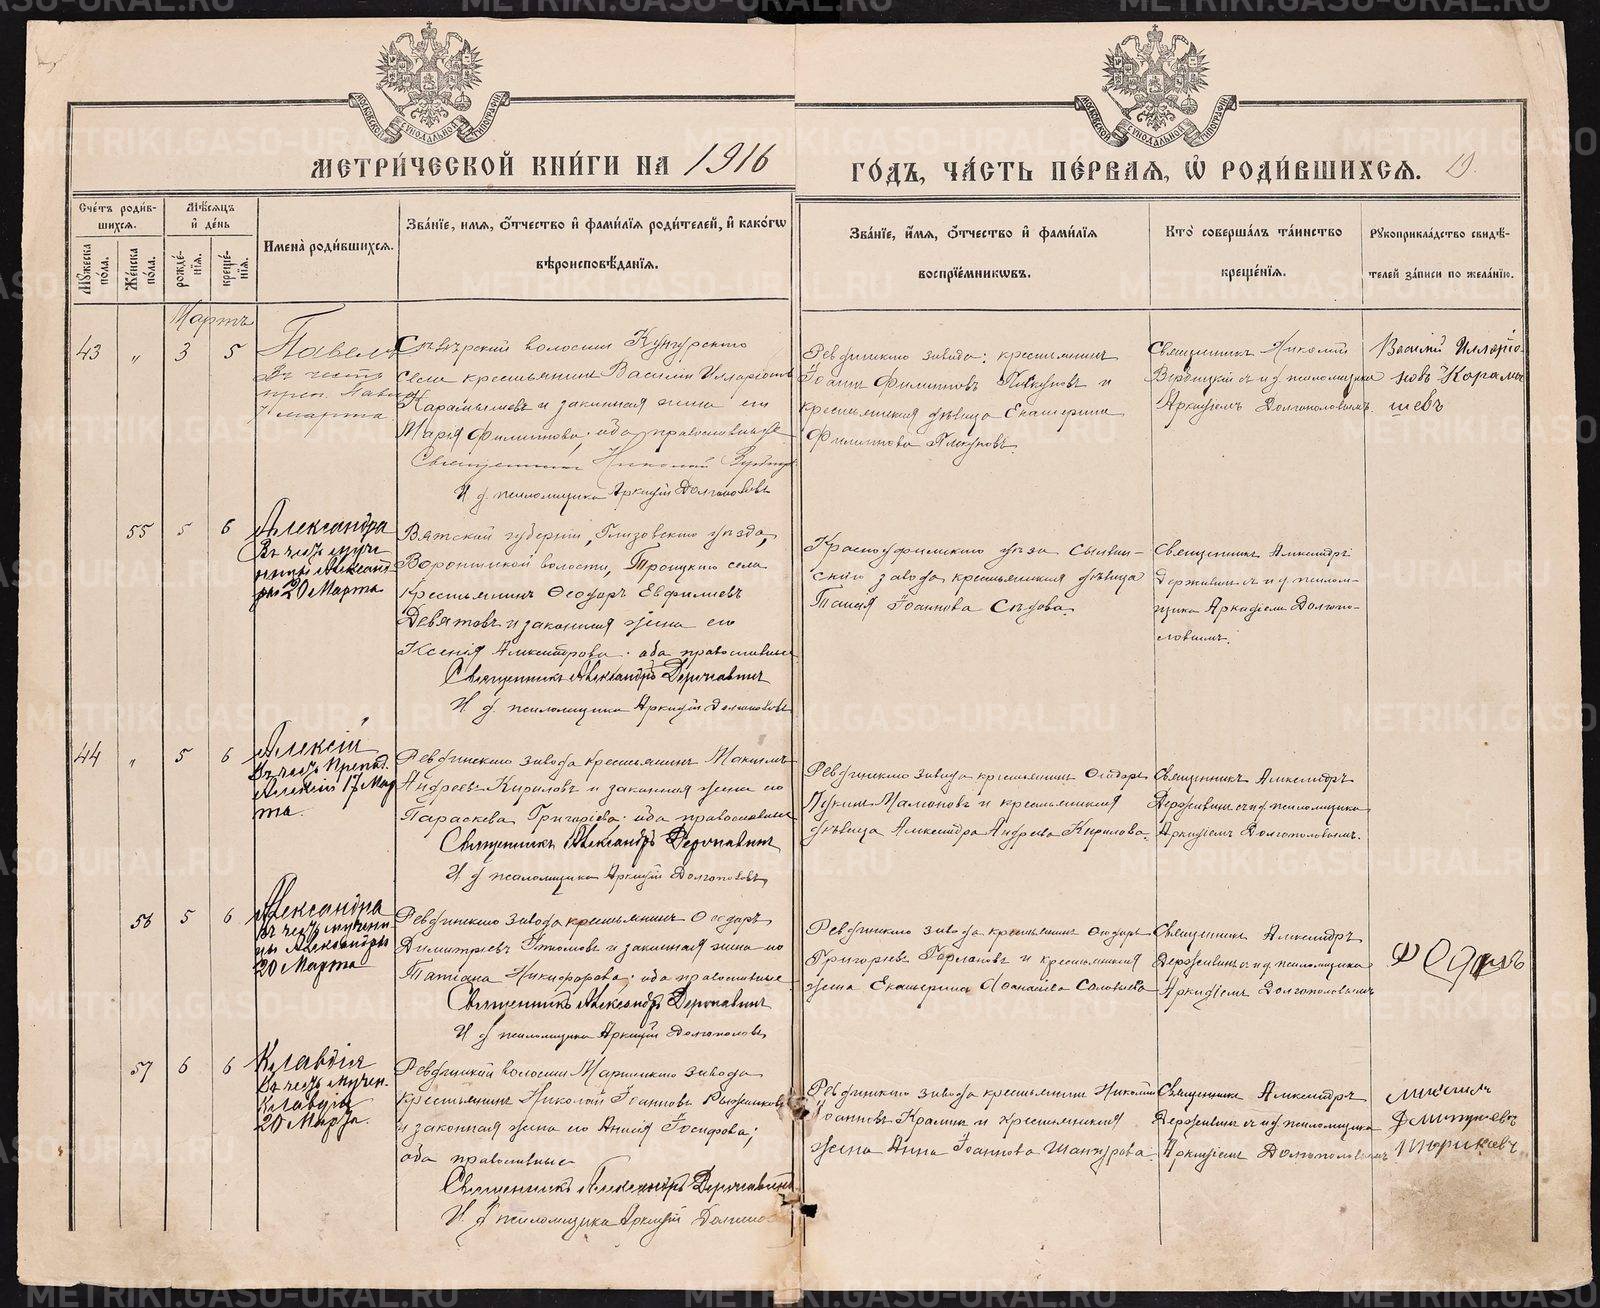 МЕТРИ́ЧЕСКОЙ КНИ́ГИ НА 1916 ГО́ДЪ, ЧА́СТЬ ПЕ́РВАЯ, Ѡ҆ РОДИ́ВШИХСЯ. 19.
МОСКОВСКОЙ СѴНОДАЛЬНОЙ ТИПОГРАФІИ
МОСКОВСКОЙ СѴНОДАЛЬНОЙ ТИПОГРАФІИ
Сче́тъ роди́вшихся.
Мꙋжеска по́ла.
Же́нска по́ла.
Мѣ́сяцъ и҆ де́нь
рожде́нїя.
креще́нїя.
И҆мена̀ роди́вшихся.
Зва́нїе, и҆мя, ѻ҆́тчество и҆ фами́лїя роди́телей, и҆ како́гѡ
вѣроисповѣ́данїя.
Зва́нїе, и҆́мя, ѻ҆́тчество и҆ фами́лїя
воспрїе́мникѡвъ.
Кто̀ соверша́лъ та́инство
креще́нїя.
Рꙋкоприкла́дство свидѣ́телей за́писи по жела́нїю.
Мартъ
43 " 3 5
Павелъ
Въ честь
преп. Павла
7 марта
волости Кунгурскаго
села крестьянинъ Василій Илларіоновъ
Карамышевъ и законная жена его
Марія Филиппова, оба православные
Священникъ Николай
И. д. псаломщика Аркадій Долгополовъ
Ревдинскаго завода: крестьянинъ
Іоаннъ Филипповъ и
крестьянская дѣвица Екатерина
Филиппова
Священникъ Николай
съ и д псаломщика
Аркадіемъ Долгополовымъ.
Василій Илларіо-
новъ Карамы
шевъ
55 5 6
Александра
Въ честь муче
ницы Александ
ры 20 Марта
Вятской губерніи, Глазовскаго уѣзда,
волости, Троицкаго села
крестьянинъ Ѳеодоръ Евфиміевъ
Девятовъ и законная жена его
Ксенія Александрова. оба православные
Священникъ Александръ Державинъ
И д. псаломщика Аркадій Долгополовъ
Красноуфимскаго уѣзда Сылвин-
скаго завода крестьянская дѣвица
Таисія Іоаннова Сѣдова.
Священникъ Александръ
Державинъ съ и д псалом-
щика Аркадіемъ Долгопо-
ловымъ.
44 " 5 6
Алексій
Въ честь Препод.
Алексія 17 Мар
та.
Ревдинскаго завода крестьянинъ Максимъ
Андреевъ Кириловъ и законная жена его
Параскева Григоріева. оба православные
Священникъ Александръ Державинъ
И д псаломщика Аркадій Долгополовъ
Ревдинскаго завода крестьянинъ Ѳеодоръ
Мамоновъ и крестьянская
дѣвица Александра Андреева Кирилова.
Священникъ Александръ
Державинъ съ и д псаломщика
Аркадіемъ Долгополовымъ.
56 5 6
Александра
Въ честь мучени
цы Александры
20 Марта
Ревдинскаго завода крестьянинъ Ѳеодоръ
Димитріевъ и законная жена его
Татіана Никифорова. оба православные
Священникъ Александръ Державинъ
И д псаломщика Аркадій Долгополовъ
Ревдинскаго завода крестьянинъ Ѳеодоръ
Григорьевъ и крестьянская
жена Екатерина Аѳанасіева Соловьева
Священникъ Александръ
Державинъ съ и д псаломщика
Аркадіемъ Долгополовымъ
57 6 6
Клавдія
Въ честь мучен.
Клавдіи
20 Марта.
Ревдинской волости Маріинскаго завода
крестьянинъ Николай Іоанновъ
и законная жена его Анисія Іосифова;
оба православные
Священникъ Александръ Державинъ
И. д псаломщика Аркадій
Ревдинскаго завода крестьянинъ Николай
Іоанновъ и крестьянская
жена Анна Іоаннова
Священникъ Александръ
Державинъ съ и д псаломщика
Аркадіемъ Долгополовымъ
METRIKI.GASO-URAL.RU